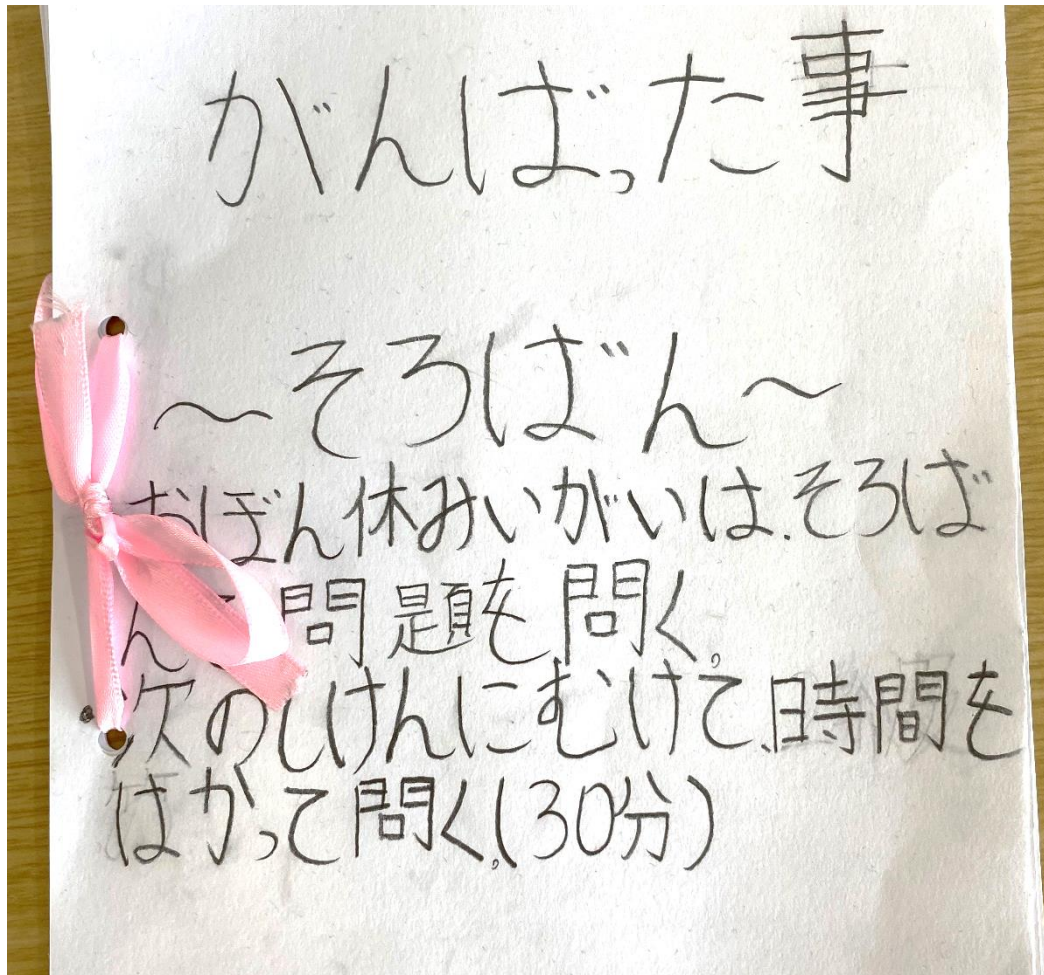 がんばった事
〜そろばん〜
おぼん休みいがいは、そろば
ん 問題を問く。
次のしけんにむけて、時間を
はかって問く。(30分)